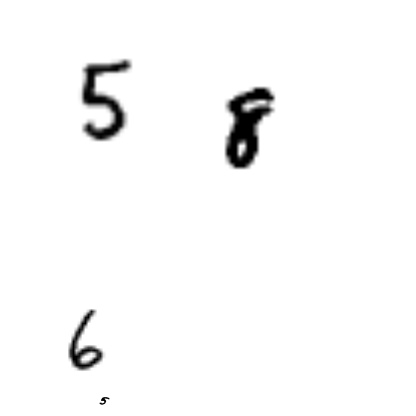 5 8
6
5